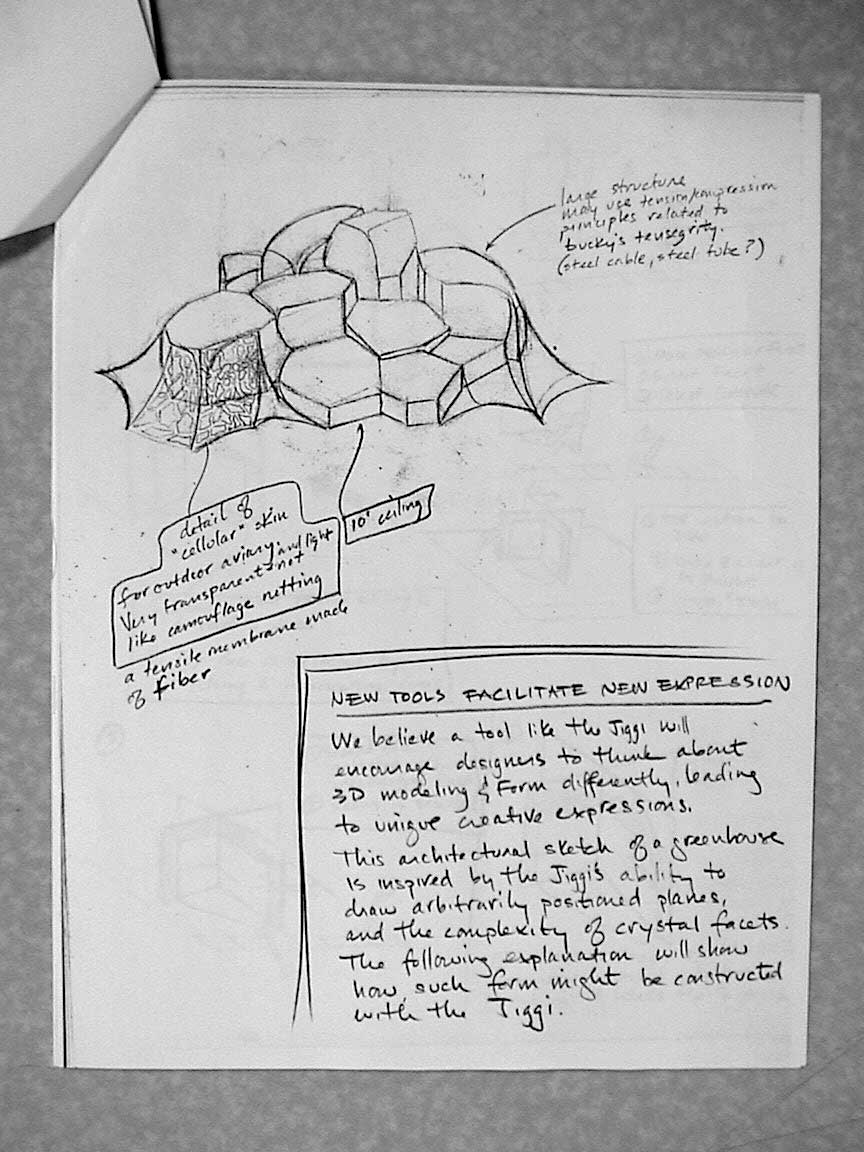 large structure
may use tension/compression
principles related to
bucky's tensegrity.
(steel cable, steel tube?)
detail of
"cellular" skin
for outdoor aviary.
Very transparent and light not
like camouflage netting
a tensile membrane made
of fiber
10' ceiling
NEW TOOLS FACILITATE NEW EXPRESSION
We believe a tool like the Jiggi will
encourage designers to think about
3D modeling & Form differently, leading
to unique creative expressions.
This architectural sketch of a greenhouse
is inspired by the Jiggi's ability to
draw arbitrarily positioned planes,
and the complexity of crystal facets.
The following explanation will show
how such form might be constructed
with the Jiggi.